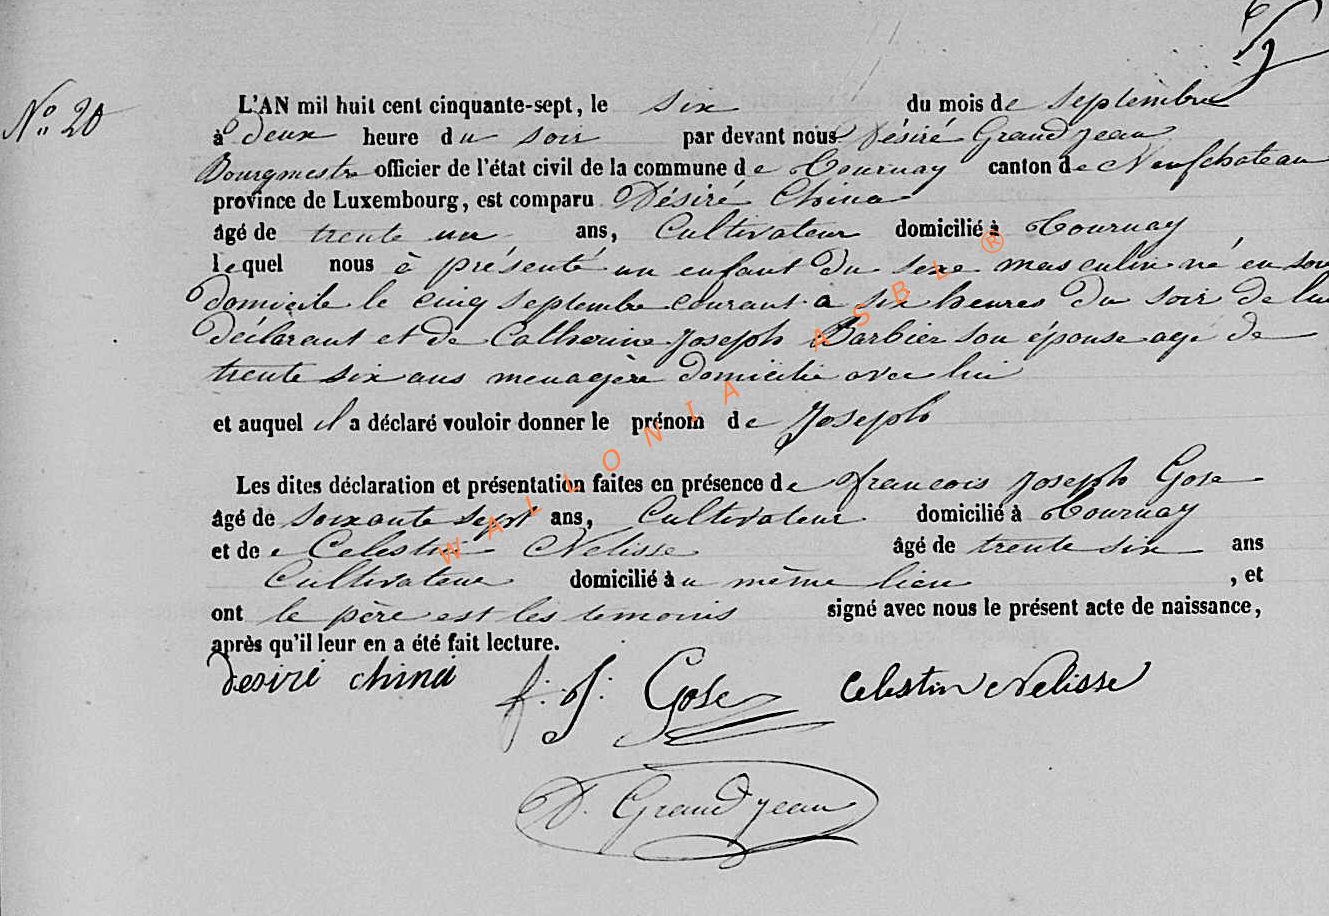 No 20
L'AN mil huit cent cinquante-sept, le six du mois de septembre
à deux heure du soir par devant nous Désiré Grandjean
Bourgmestre officier de l'état civil de la commune de Tournay canton de Neufchateau
province de Luxembourg, est comparu Désiré China
âgé de trente un ans, Cultivateur domicilié à Tournay
lequel nous à présenté un enfant du sexe masculin né en son
domicile le cinq septembre courant à six heures du soir de lui
déclarant et de Catherine Joseph Barbier son épouse agé de
trente six ans menagère domicilié avec lui
et auquel il a déclaré vouloir donner le prénom de Joseph
Les dites déclaration et présentation faites en présence de francois Joseph Gose
âgé de soixante sept ans, Cultivateur domicilié à Tournay
et de Celestin Nelisse âgé de trente six ans
Cultivateur domicilié au même lieu , et
ont le père est les temoins signé avec nous le présent acte de naissance,
après qu'il leur en a été fait lecture.
desiré china f. J. Gose Celestin Nelisse
D. Grandjean
WALLONIA ASBL ®